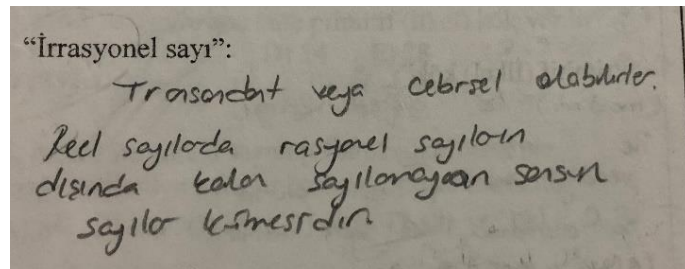 “İrrasyonel sayı”:
Trasandant veya cebirsel olabilirler.
Reel sayılarda rasyonel sayıların
dışında kalan sayılamayan sonsuz
sayılar kümesidir.